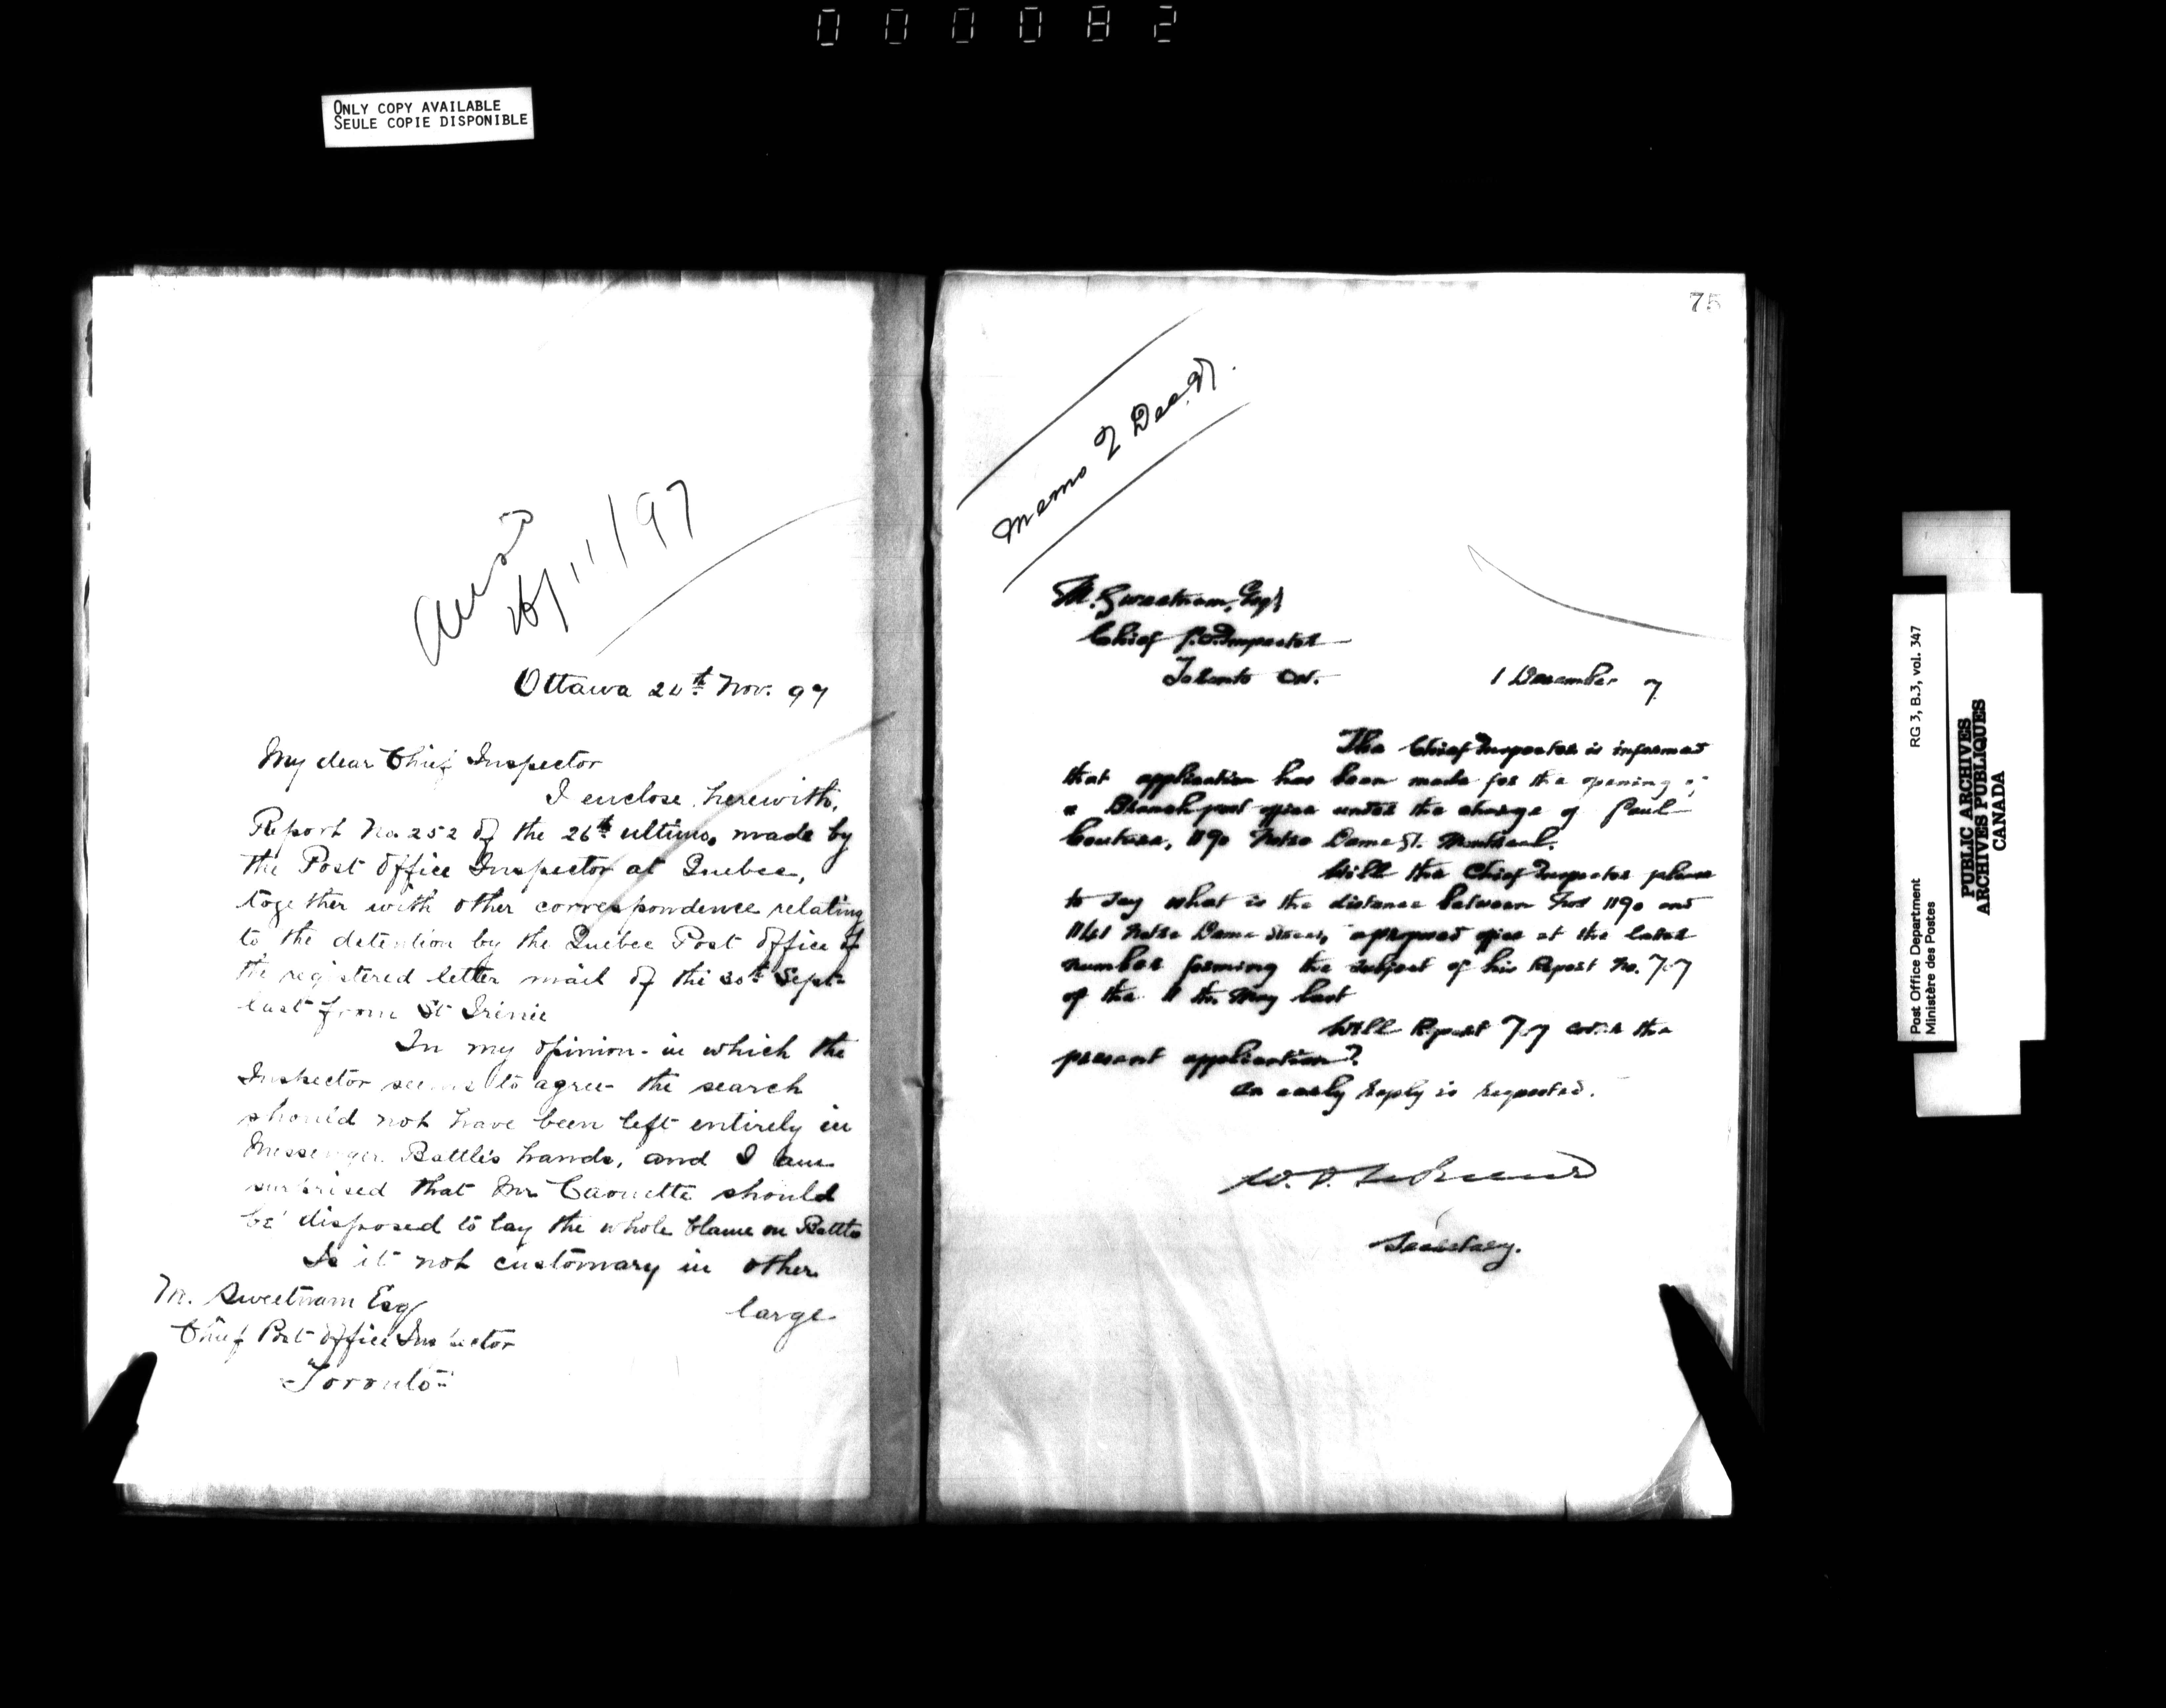 000082
ONLY COPY AVAILABLE
SEULE COPIE DISPONIBLE
26/11/97
Ottawa 24th Nov. 97
My dear Chief Inspector
I enclose herewith,
Report No 252 of the 26th ultimo, made by
the Post Office Inspector at Quebec,
together with other correspondence relating
to the detention by the Quebec Post Office of
the registered letter mail of the 30th Sept.
last from St Irénée
In my opinion - in which the
Inspector seems to agree - the search
should not have been left entirely in
Messenger Battle's hands, and I am
surprised that Mr Caouette should
be disposed to lay the whole blame on Battle
Is it not customary in other
large
M. Sweetnam Esq
Chief Post Office Inspector
Toronto
75
Memo 2 Dec. 97.
M. Sweetnam, Esq,
Chief P.O. Inspector
Toronto Ont.
1 December 7
The Chief Inspector is informed
that application has been made for the opening of
a Branch post office under the charge of Paul
Couture, 1190 Notre Dame St. Montreal.
Will the Chief Inspector please
to say what is the distance between Nos 1190 and
1141 Notre Dame Street, a proposed office at the latter
number forming the subject of his Report No. 7.7
of the 11th May last
Will Report 7.7 cover the
present application?
An early reply is requested.
Secretary.
Post Office Department RG 3, B.3, vol. 347
Ministère des Postes
PUBLIC ARCHIVES
ARCHIVES PUBLIQUES
CANADA